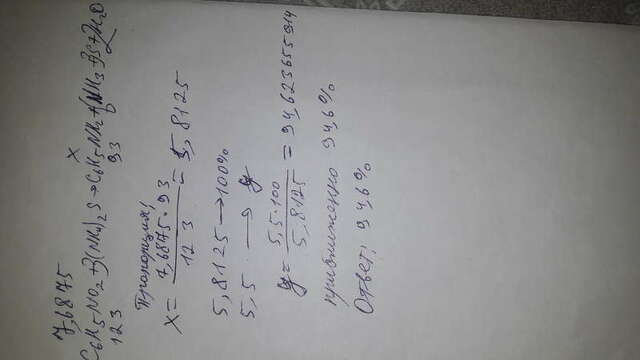 7,6875
x
C6H5NO2 + 3(NH4)2S → C6H5NH2 + 6NH3 + 3S + 2H2O
123 93
Пропорция:
x = 7,6875 · 93 / 123 = 5,8125
5,8125 → 100%
5,5 → y
y = 5,5 · 100 / 5,8125 = 94,623655914
приближенно 94,6%
Ответ: 94,6%